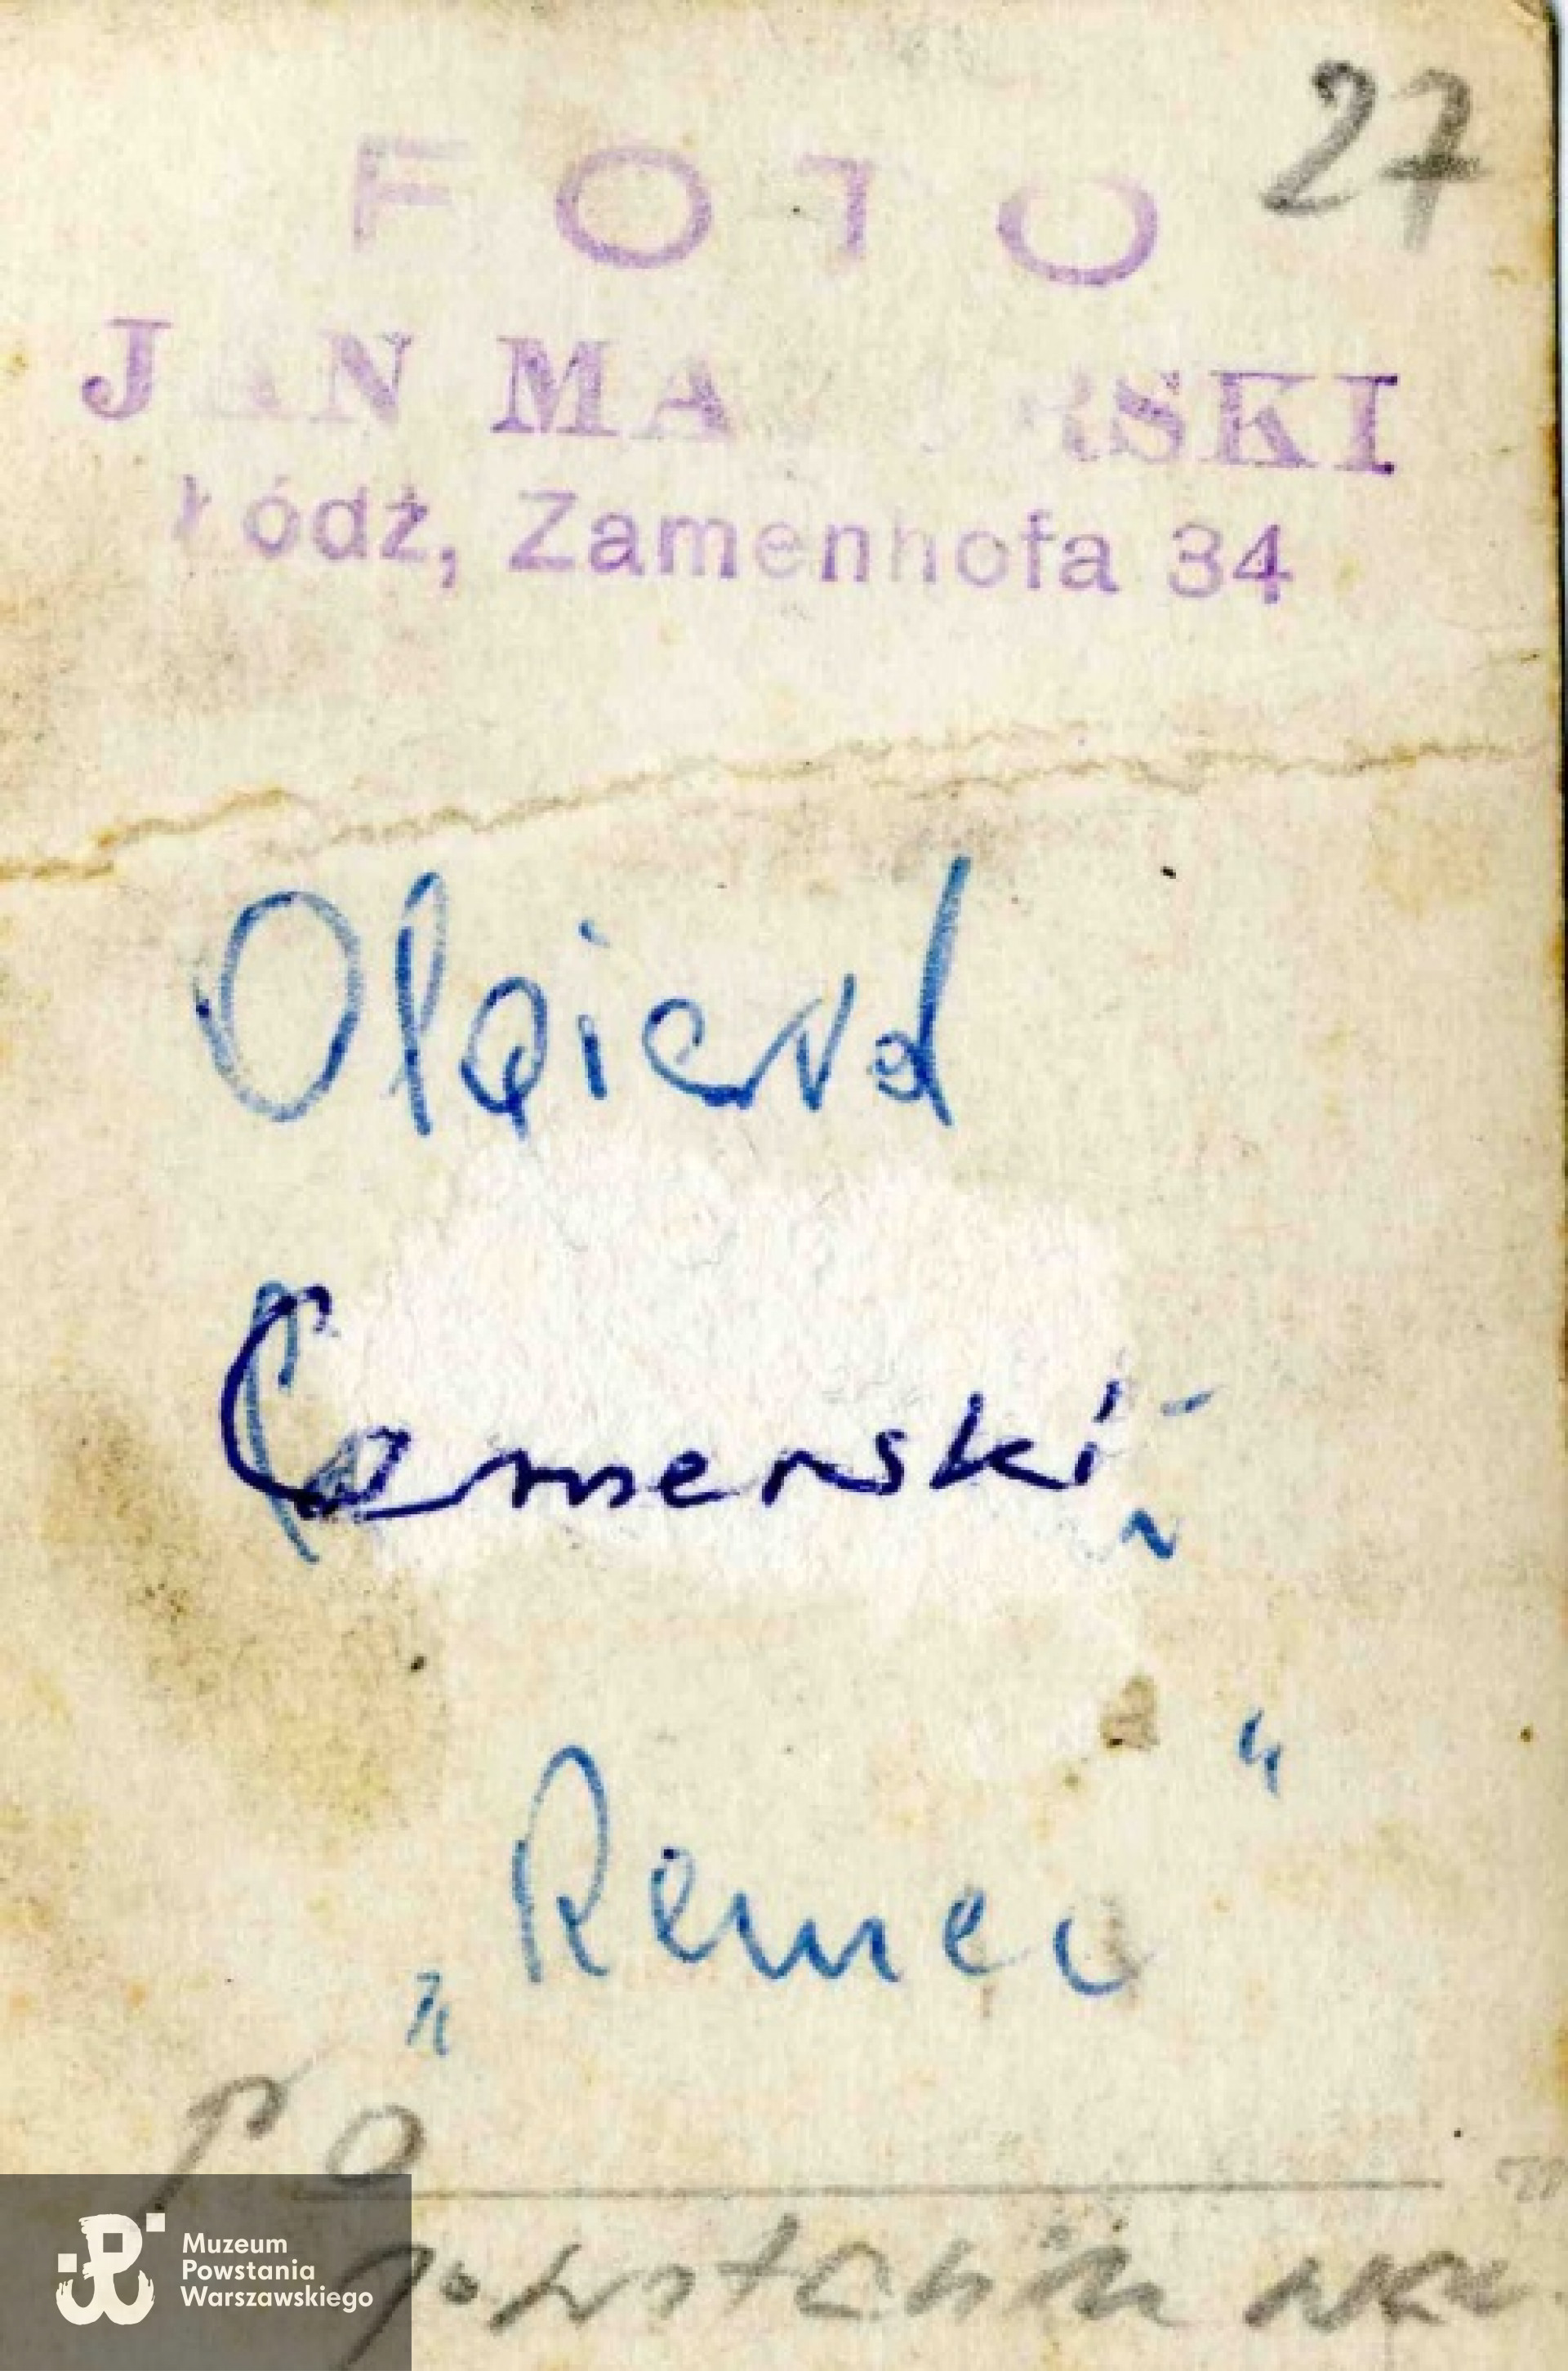 27
FOTO
JAN MA RSKI
Łódź, Zamenhofa 34
Olgierd
Cemerski
"
„Remec
po
powstaniu
Muzeum
Powstania
Warszawskiego